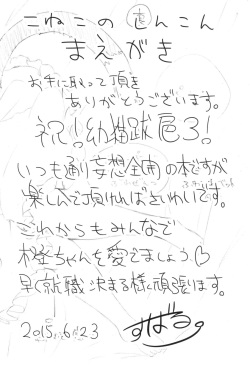 こねこの しんこん
まえがき
お手に取って頂き
ありがとうございます。
祝!幼猫跋扈3!
いつも通り妄想全開の本ですが
楽しんで頂ければさいわいです。
これからもみんなで
橙ちゃんを愛でましょう
早く就職決まる様頑張ります。
2015.6.23
すばる。